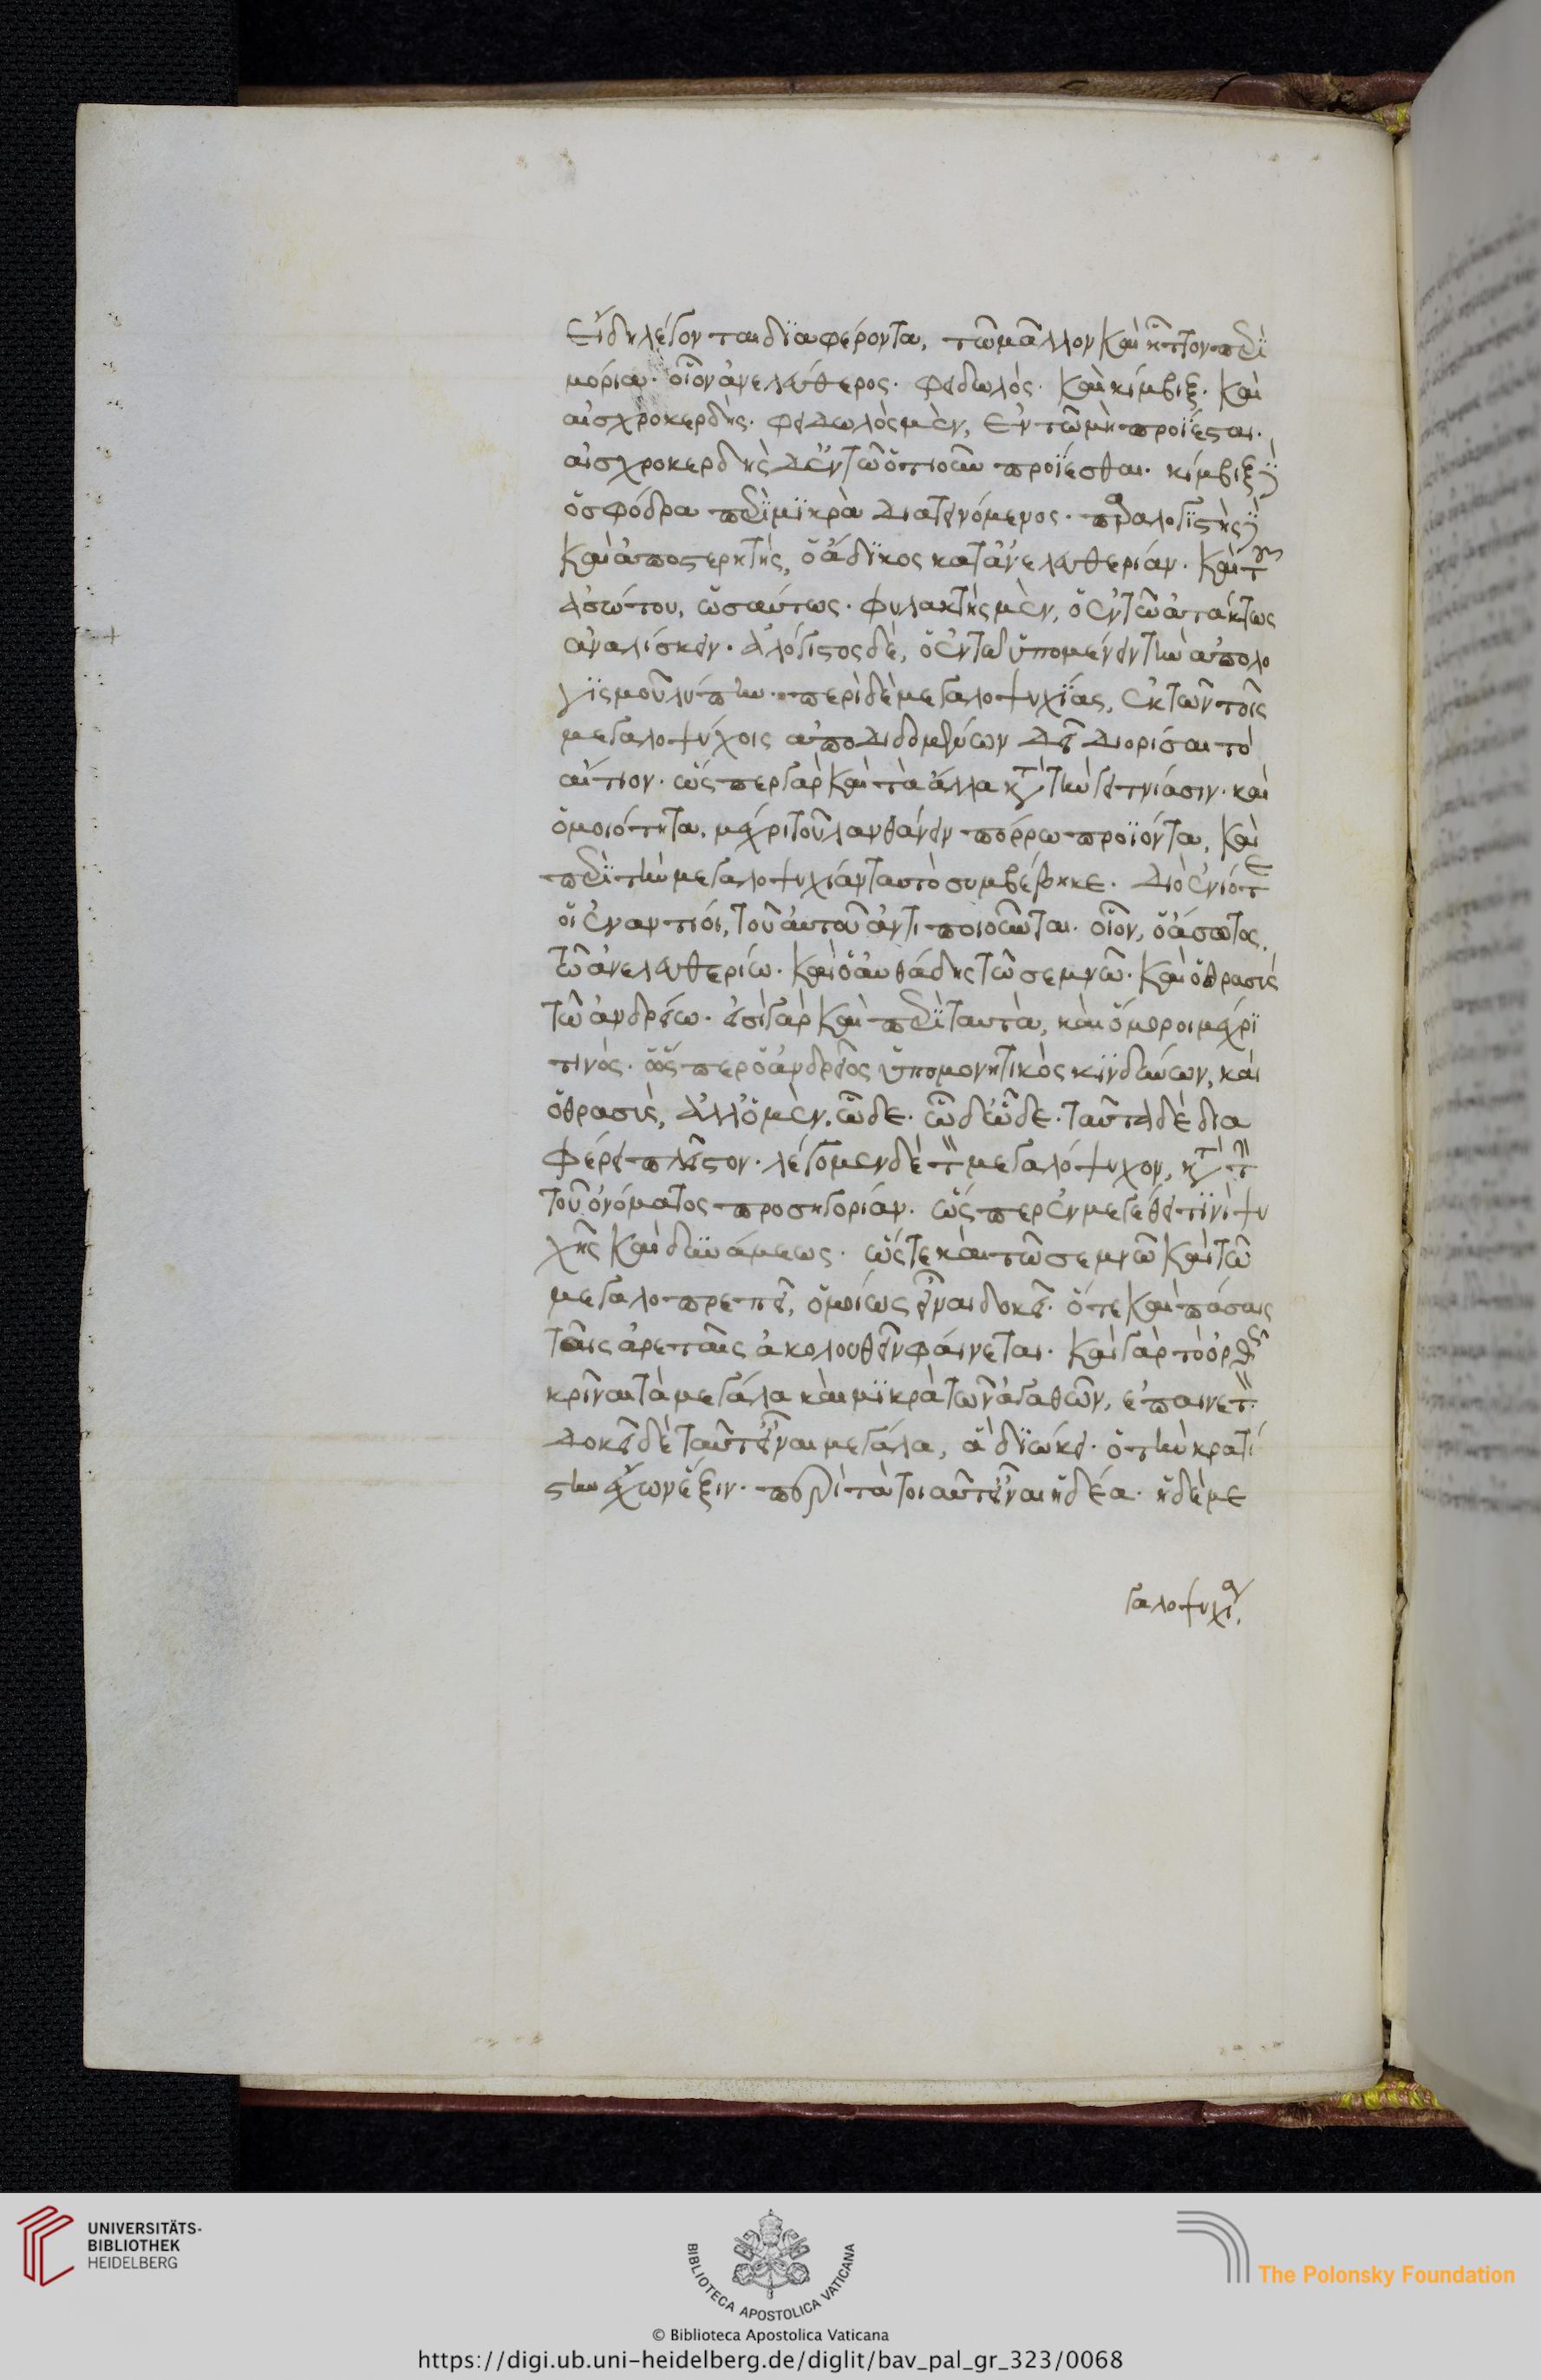 εἴδη λέγονται διαφέροντα, τῶ μᾶλλον καὶ ἧττον περὶ
μόρια. οἷον ἀνελεύθερος. φειδωλός. καὶ κίμβιξ. καὶ
αἰσχροκερδής. φειδωλὸς μὲν, ἐν τῶ μὴ προΐεσαι.
αἰσχροκερδὴς δ' ἐν τῶ ὁτιοῦν προΐεσθαι. κίμβιξ δὲ
ὁ σφόδρα περὶ μικρὰ διατεινόμενος. παραλογιστὴς δὲ
καὶ ἀποστερητής, ὁ ἄδικος κατ' ἀνελευθερίαν. καὶ τοῦ
ἀσώτου, ὡσαύτως. φυλακτὴς μὲν, ὁ ἐν τῶ ἀτάκτως
ἀναλίσκειν. ἀλόγιστος δὲ, ὁ ἐν τῶ ὑπομένειν τὴν ἀπολο
γισμοῦ λύπην. περὶ δὲ μεγαλοψυχίας, ἐκ τῶν τοῖς
μεγαλοψύχοις ἀποδιδομένων δεῖ διορίσαι τὸ
αἴτιον. ὥσπερ γὰρ καὶ τὰ ἄλλα κατὰ τὴν γειτνίασιν. καὶ
ὁμοιότητα, μέχρι τοῦ λανθάνειν πόρρω προϊόντα, καὶ
περὶ τὴν μεγαλοψυχίαν ταυτὸ συμβέβηκε. διὸ ἐνίοτε
οἱ ἐναντίοι, τοῦ αὐτοῦ ἀντιποιοῦνται. οἷον, ὁ ἄσωτος
τῶ ἀνελευθερίω. καὶ ὁ αὐθάδης τῶ σεμνῶ. καὶ ὁ θρασὺς
τῶ ἀνδρείω. εἰσὶ γὰρ καὶ περὶ ταυτὰ, καὶ ὅμοροι μέχρι
τινός. ὥσπερ ὁ ἀνδρεῖος ὑπομονητικὸς κινδύνων, καὶ
ὁ θρασὺς, ἀλλ' ὁ μὲν, ὧδε. ὧδ' ὧδε. ταῦτα δὲ δια
φέρει πλεῖστον. λέγομεν δὲ τὸν μεγαλόψυχον, κατὰ τὴν
τοῦ ὀνόματος προσηγορίαν. ὥσπερ ἐν μεγέθει τινὶ ψυ
χῆς καὶ δυνάμεως. ὥστε καὶ τῶ σεμνῶ καὶ τῶ
μεγαλοπρεπεῖ, ὁμοίως εἶναι δοκεῖ. ὅτε καὶ πάσαις
ταῖς ἀρεταῖς ἀκολουθεῖν φαίνεται. καὶ γὰρ τὸ ὀρθῶς
κρῖναι τὰ μεγάλα καὶ μικρὰ τῶν ἀγαθῶν, ἐπαινετόν.
δοκεῖ δὲ ταῦτ' εἶναι μεγάλα, ἃ διώκει. ὁ τὴν κρατί
στην ἔχων ἕξιν. περὶ τὰ τοιαῦτ' εἶναι ἡδέα. ἡ δὲ με
γαλοψυχία
UNIVERSITÄTS-
BIBLIOTHEK
HEIDELBERG
BIBLIOTECA APOSTOLICA VATICANA
The Polonsky Foundation
© Biblioteca Apostolica Vaticana
https://digi.ub.uni-heidelberg.de/diglit/bav_pal_gr_323/0068